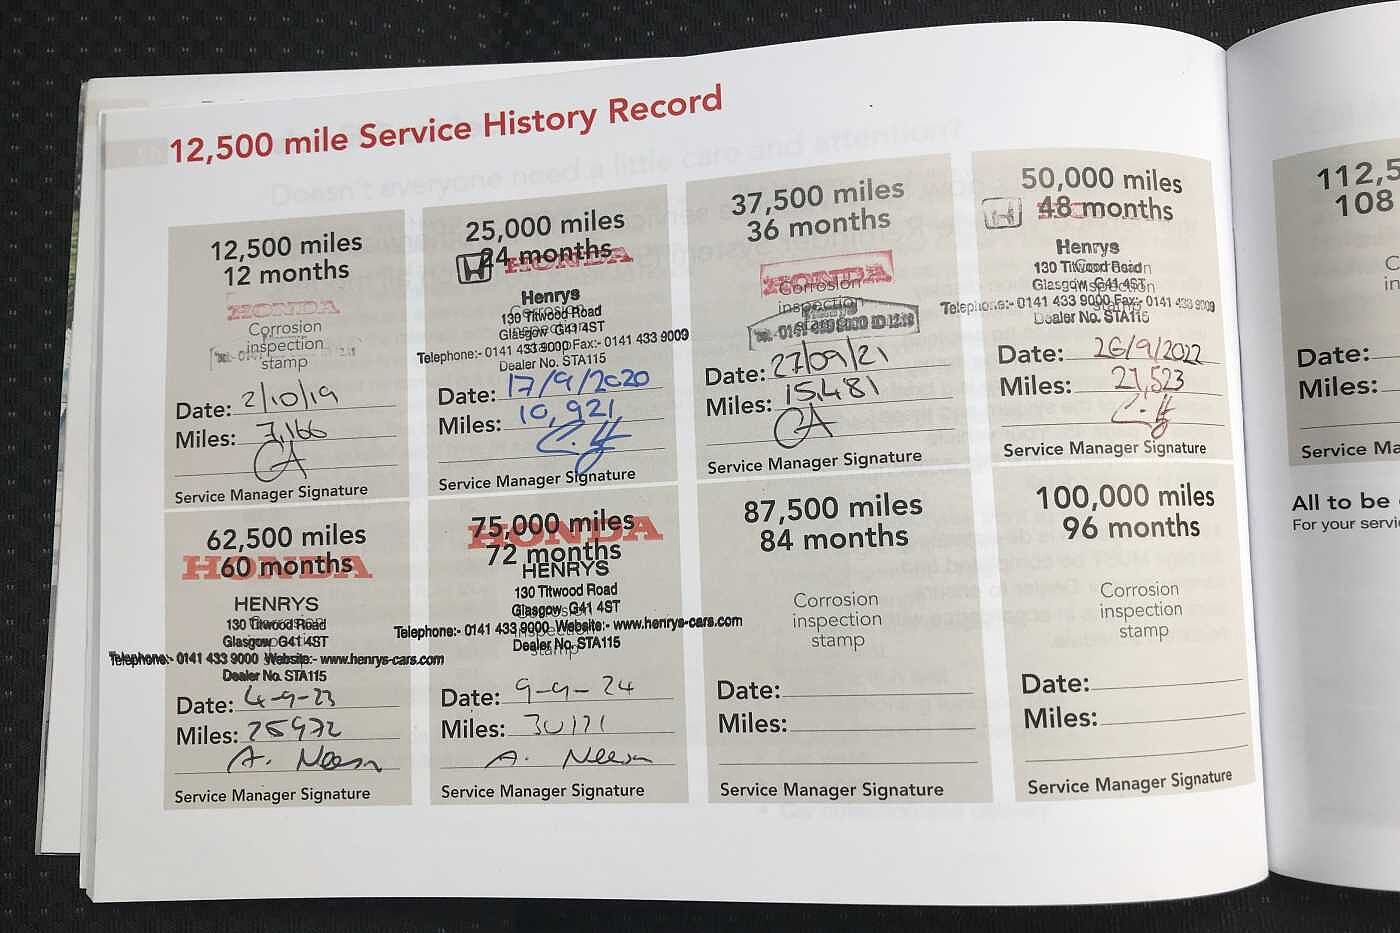 12,500 mile Service History Record
12,500 miles
12 months
HONDA
Corrosion
inspection
stamp
Date: 2/10/19
Miles: 7,166
CA
Service Manager Signature
25,000 miles
24 months
HONDA
Henrys
130 Titwood Road
Glasgow G41 4ST
Telephone:- 0141 433 9000 Fax:- 0141 433 9009
Dealer No. STA115
Date: 17/9/2020
Miles: 10,921
Service Manager Signature
37,500 miles
36 months
HONDA
Corrosion
inspection
Date: 27/09/21
Miles: 15,481
CA
Service Manager Signature
50,000 miles
48 months
Henrys
130 Titwood Road
Glasgow G41 4ST
Telephone:- 0141 433 9000 Fax:- 0141 433 9009
Dealer No. STA115
Date: 26/9/2022
Miles: 21,523
Service Manager Signature
62,500 miles
60 months
HONDA
HENRYS
130 Titwood Road
Glasgow G41 4ST
Telephone:- 0141 433 9000 Website:- www.henrys-cars.com
Dealer No. STA115
Date: 4-9-23
Miles: 25972
A. Neeson
Service Manager Signature
75,000 miles
72 months
HONDA
HENRYS
130 Titwood Road
Glasgow G41 4ST
Telephone:- 0141 433 9000 Website:- www.henrys-cars.com
Dealer No. STA115
stamp
Date: 9-9-24
Miles: 30171
A. Neeson
Service Manager Signature
87,500 miles
84 months
Corrosion
inspection
stamp
Date:
Miles:
Service Manager Signature
100,000 miles
96 months
Corrosion
inspection
stamp
Date:
Miles:
Service Manager Signature
112,5
108
Date:
Miles:
Service Ma
All to be
For your servi